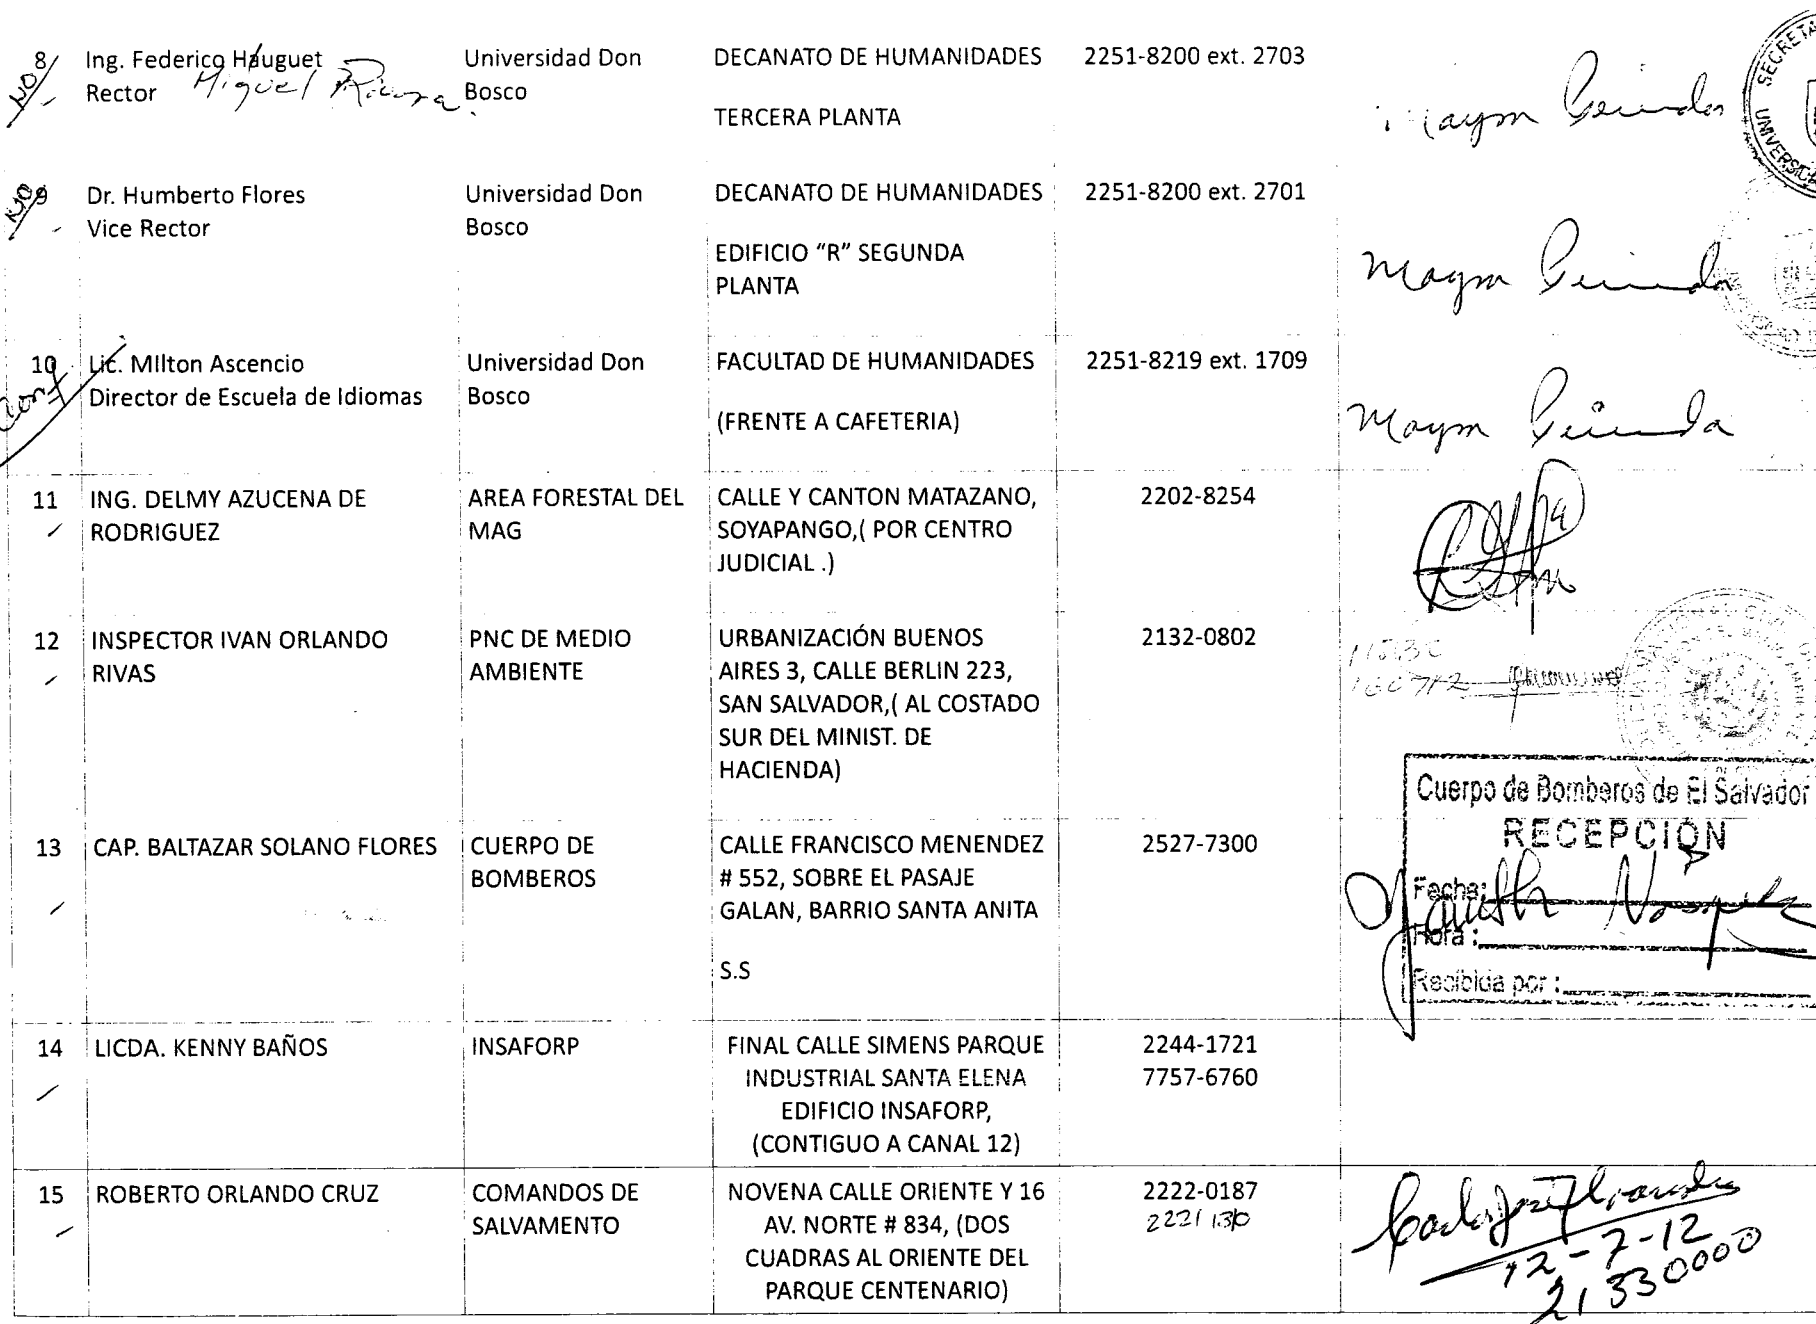 NO
8
Ing. Federico Hauguet
Rector
Miguel Rivera
Universidad Don
Bosco
DECANATO DE HUMANIDADES
TERCERA PLANTA
2251-8200 ext. 2703
NO
9
Dr. Humberto Flores
Vice Rector
Universidad Don
Bosco
DECANATO DE HUMANIDADES
EDIFICIO “R” SEGUNDA
PLANTA
2251-8200 ext. 2701
10
Conf
Lic. MIlton Ascencio
Director de Escuela de Idiomas
Universidad Don
Bosco
FACULTAD DE HUMANIDADES
(FRENTE A CAFETERIA)
2251-8219 ext. 1709
11
ING. DELMY AZUCENA DE
RODRIGUEZ
AREA FORESTAL DEL
MAG
CALLE Y CANTON MATAZANO,
SOYAPANGO,( POR CENTRO
JUDICIAL .)
2202-8254
12
INSPECTOR IVAN ORLANDO
RIVAS
PNC DE MEDIO
AMBIENTE
URBANIZACIÓN BUENOS
AIRES 3, CALLE BERLIN 223,
SAN SALVADOR,( AL COSTADO
SUR DEL MINIST. DE
HACIENDA)
2132-0802
160712
13
CAP. BALTAZAR SOLANO FLORES
CUERPO DE
BOMBEROS
CALLE FRANCISCO MENENDEZ
# 552, SOBRE EL PASAJE
GALAN, BARRIO SANTA ANITA
S.S
2527-7300
Cuerpo de Bomberos de El Salvador
RECEPCION
Fecha:
Hora :
Recibida por :
14
LICDA. KENNY BAÑOS
INSAFORP
FINAL CALLE SIMENS PARQUE
INDUSTRIAL SANTA ELENA
EDIFICIO INSAFORP,
(CONTIGUO A CANAL 12)
2244-1721
7757-6760
15
ROBERTO ORLANDO CRUZ
COMANDOS DE
SALVAMENTO
NOVENA CALLE ORIENTE Y 16
AV. NORTE # 834, (DOS
CUADRAS AL ORIENTE DEL
PARQUE CENTENARIO)
2222-0187
12-7-12
21330000